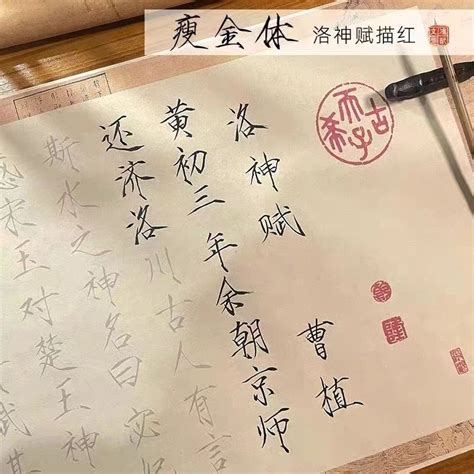 瘦金体 洛神赋描红
洛神赋
曹植
黄初三年余朝京师
还济洛川古人有言
斯水之神名曰宓妃
感宋玉对楚王神
赋其
古稀天子